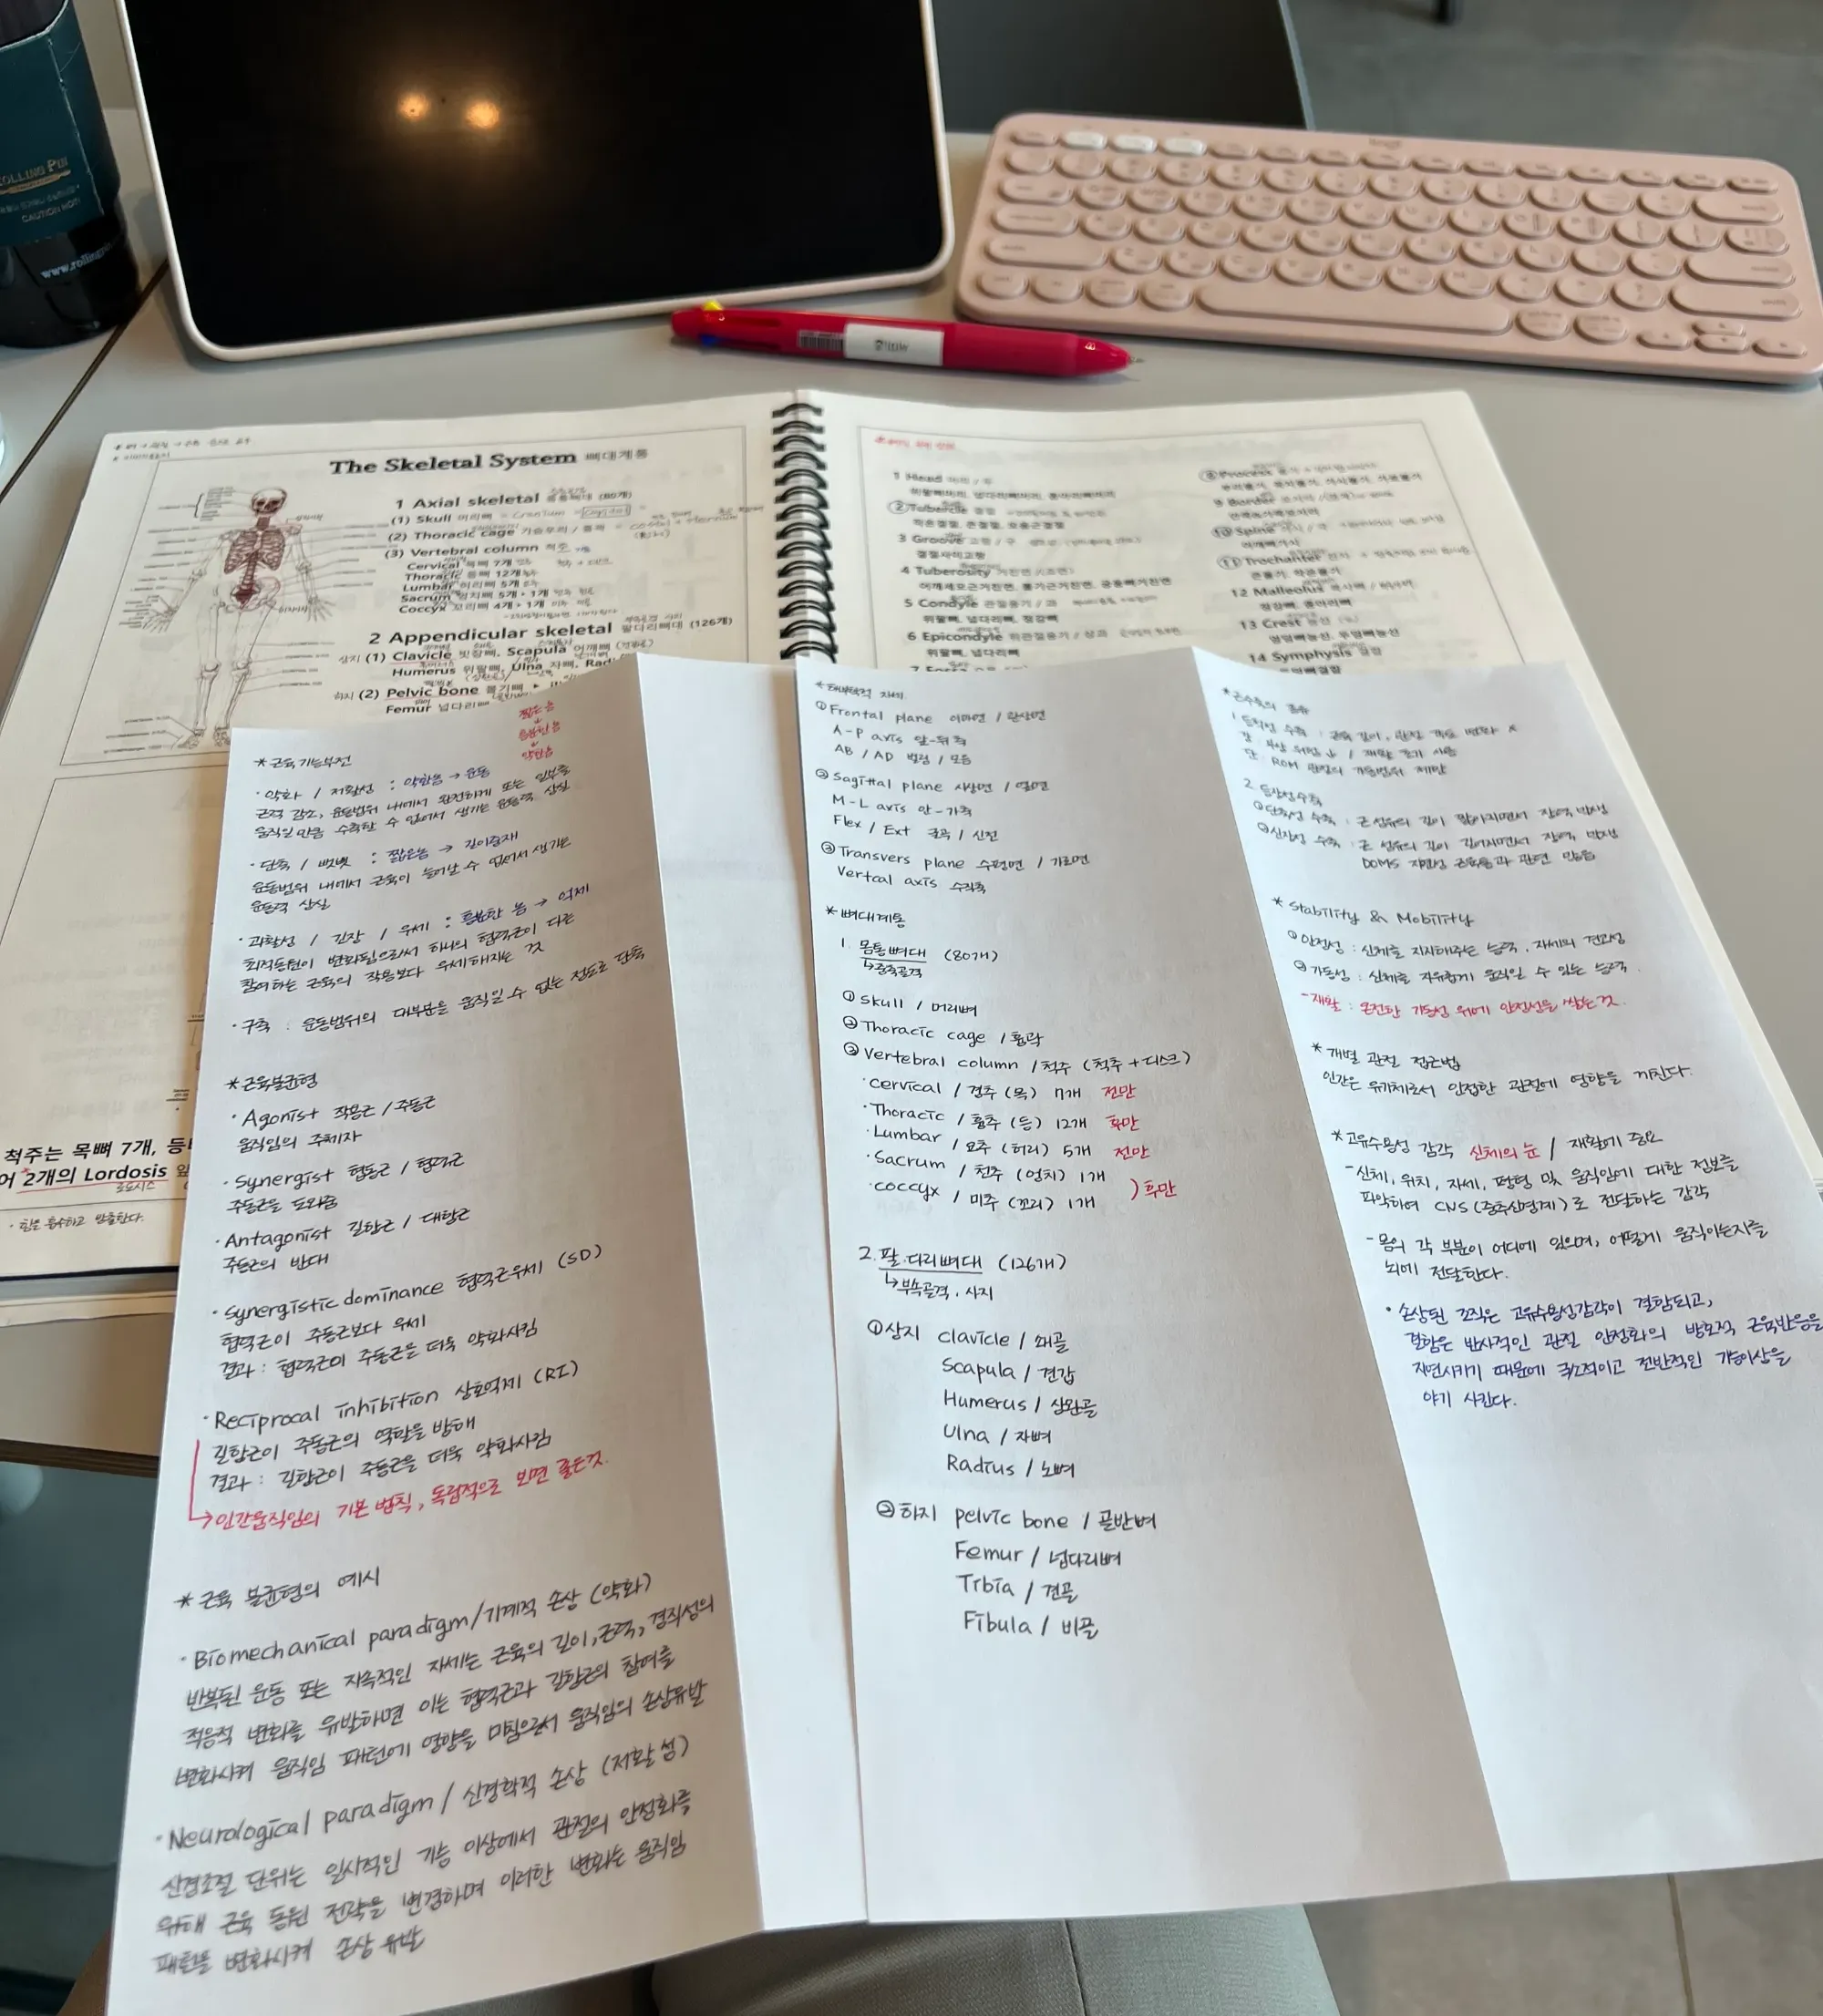 ROLLING PIN
CAUTION HOT
The Skeletal System 뼈대계통
1 Axial skeletal 몸통뼈대 (80개)
(1) Skull 머리뼈 = Cranium =
(2) Thoracic cage 가슴우리 / 흉곽 =
(3) Vertebral column 척주
Cervical 목뼈 7개
Thoracic 등뼈 12개
Lumbar 허리뼈 5개
Sacrum 엉치뼈 5개 · 1개
Coccyx 꼬리뼈 4개 · 1개
2 Appendicular skeletal 팔다리뼈대 (126개)
상지 (1) Clavicle 빗장뼈, Scapula 어깨뼈
Humerus 위팔뼈, Ulna 자뼈, Radi
하지 (2) Pelvic bone 볼기뼈
Femur 넙다리뼈
척주는 목뼈 7개, 등
어 2개의 Lordosis 앞
로도시스
· 힘을 흡수하고 방출한다.
1 Head 머리 / 두
위팔뼈머리, 넙다리뼈머리, 종아리뼈머리
② Tubercle 결절
작은결절, 큰결절, 오름근결절
3 Groove 고랑 / 구
결절사이고랑
4 Tuberosity 거친면 / (조면)
어깨세모근거친면, 볼기근거친면, 궁둥뼈거친면
5 Condyle 관절융기 / 과
위팔뼈, 넙다리뼈, 정강뼈
6 Epicondyle 위관절융기 / 상과
위팔뼈, 넙다리뼈
⑧ Process 돌기
9 Border
⑩ Spine 가시 / 극
어깨뼈가시
⑪ Trochanter
큰돌기, 작은돌기
12 Malleolus 복사뼈
정강뼈, 종아리뼈
13 Crest 능선
엉덩뼈능선, 두덩뼈능선
14 Symphysis 결합
두덩뼈결합
짧은놈
↓
흥분한놈
↓
약한놈
* 근육기능부전
· 약화 / 저활성 : 약한놈 → 운동
근력 감소, 운동범위 내에서 완전하게 또는 일부를
움직일 만큼 수축할 수 없어서 생기는 운동력 상실
· 단축 / 뻣뻣 : 짧은놈 → 길이문제
운동범위 내에서 근육이 늘어날 수 없어서 생기는
운동력 상실
· 과활성 / 긴장 / 우세 : 흥분한 놈 → 억제
최적동원이 변화됨으로써 하나의 협력근이 다른
참여하는 근육의 작용보다 우세해지는 것
· 구축 : 운동범위의 대부분을 움직일 수 없는 정도로 단축
* 근육불균형
· Agonist 작용근 / 주동근
움직임의 주체자
· Synergist 협동근 / 협력근
주동근을 도와줌
· Antagonist 길항근 / 대항근
주동근의 반대
· Synergistic dominance 협력근우세 (SD)
협력근이 주동근보다 우세
결과 : 협력근이 주동근을 더욱 약화시킴
· Reciprocal inhibition 상호억제 (RI)
길항근이 주동근의 역할을 방해
결과 : 길항근이 주동근을 더욱 약화시킴
→ 인간움직임의 기본 법칙, 독립적으로 보면 좋은것.
* 근육 불균형의 예시
· Biomechanical paradigm / 기계적 손상 (약화)
반복된 운동 또는 지속적인 자세는 근육의 길이, 근력, 경직성의
적응적 변화를 유발하면 이는 협력근과 길항근의 참여를
변화시켜 움직임 패턴에 영향을 미침으로서 움직임의 손상유발
· Neurological paradigm / 신경학적 손상 (저활성)
신경조절 단위는 일시적인 기능 이상에서 관절의 안정화를
위해 근육 동원 전략을 변경하며 이러한 변화는 움직임
패턴을 변화시켜 손상 유발
* 해부학적 자세
① Frontal plane 이마면 / 관상면
A-P axis 앞-뒤축
AB / AD 벌림 / 모음
② Sagittal plane 시상면 / 옆면
M-L axis 안-가쪽
Flex / Ext 굴곡 / 신전
③ Transvers plane 수평면 / 가로면
Vertcal axis 수직축
* 뼈대계통
1. 몸통뼈대 (80개)
↳ 중축골격
① Skull / 머리뼈
② Thoracic cage / 흉곽
③ Vertebral column / 척주 (척추 + 디스크)
· cervical / 경추 (목) 7개 전만
· Thoracic / 흉추 (등) 12개 후만
· Lumbar / 요추 (허리) 5개 전만
· Sacrum / 천추 (엉치) 1개
· coccyx / 미추 (꼬리) 1개 ) 후만
2. 팔.다리뼈대 (126개)
↳ 부속골격. 사지
① 상지 clavicle / 쇄골
Scapula / 견갑
Humerus / 상완골
Ulna / 자뼈
Radius / 노뼈
② 하지 pelvic bone / 골반뼈
Femur / 넙다리뼈
Tibia / 견골
Fibula / 비골
* 근수축의 종류
1. 등척성 수축 : 근육 길이, 관절 각도 변화 x
장 : 부상 위험 ↓ / 재활 초기 사용
단 : ROM 관절의 가동범위 제한
2. 등장성수축
① 단축성 수축 : 근섬유의 길이 짧아지면서 장력 발생
② 신장성 수축 : 근 섬유의 길이 길어지면서 장력 발생
DOMS 지연성 근육통과 관련 있음
* Stability & Mobility
① 안정성 : 신체를 지지해주는 능력. 자세의 견고성
② 가동성 : 신체를 자유롭게 움직일 수 있는 능력.
- 재활 : 온전한 가동성 위에 안정성을 쌓는것.
* 개별 관절 접근법
인간은 유기체로서 인접한 관절에 영향을 끼친다.
* 고유수용성 감각 신체의 눈 / 재활에 중요
- 신체, 위치, 자세, 평형 및 움직임에 대한 정보를
파악하여 CNS (중추신경계) 로 전달하는 감각
- 몸의 각 부분이 어디에 있으며, 어떻게 움직이는지를
뇌에 전달한다.
· 손상된 조직은 고유수용성감각이 결함되고,
결함은 반사적인 관절 안정화의 방호적 근육반응을
지연시키기 때문에 국소적이고 전반적인 기능이상을
야기 시킨다.